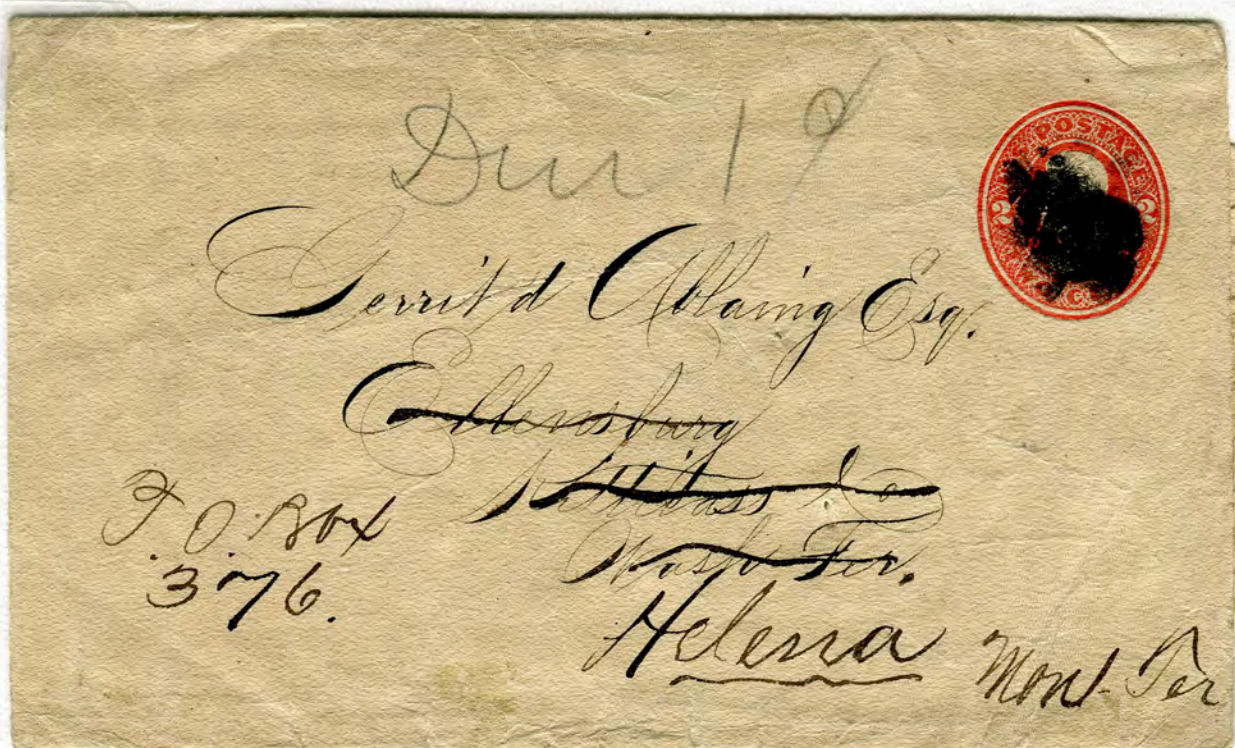 Due 1¢
U.S. POSTAGE
2 2
Gerrit d'Ablaing Esq.
Ellensburg
Kittitass Co
Wash Ter.
P.O. Box
376.
Helena Mont. Ter